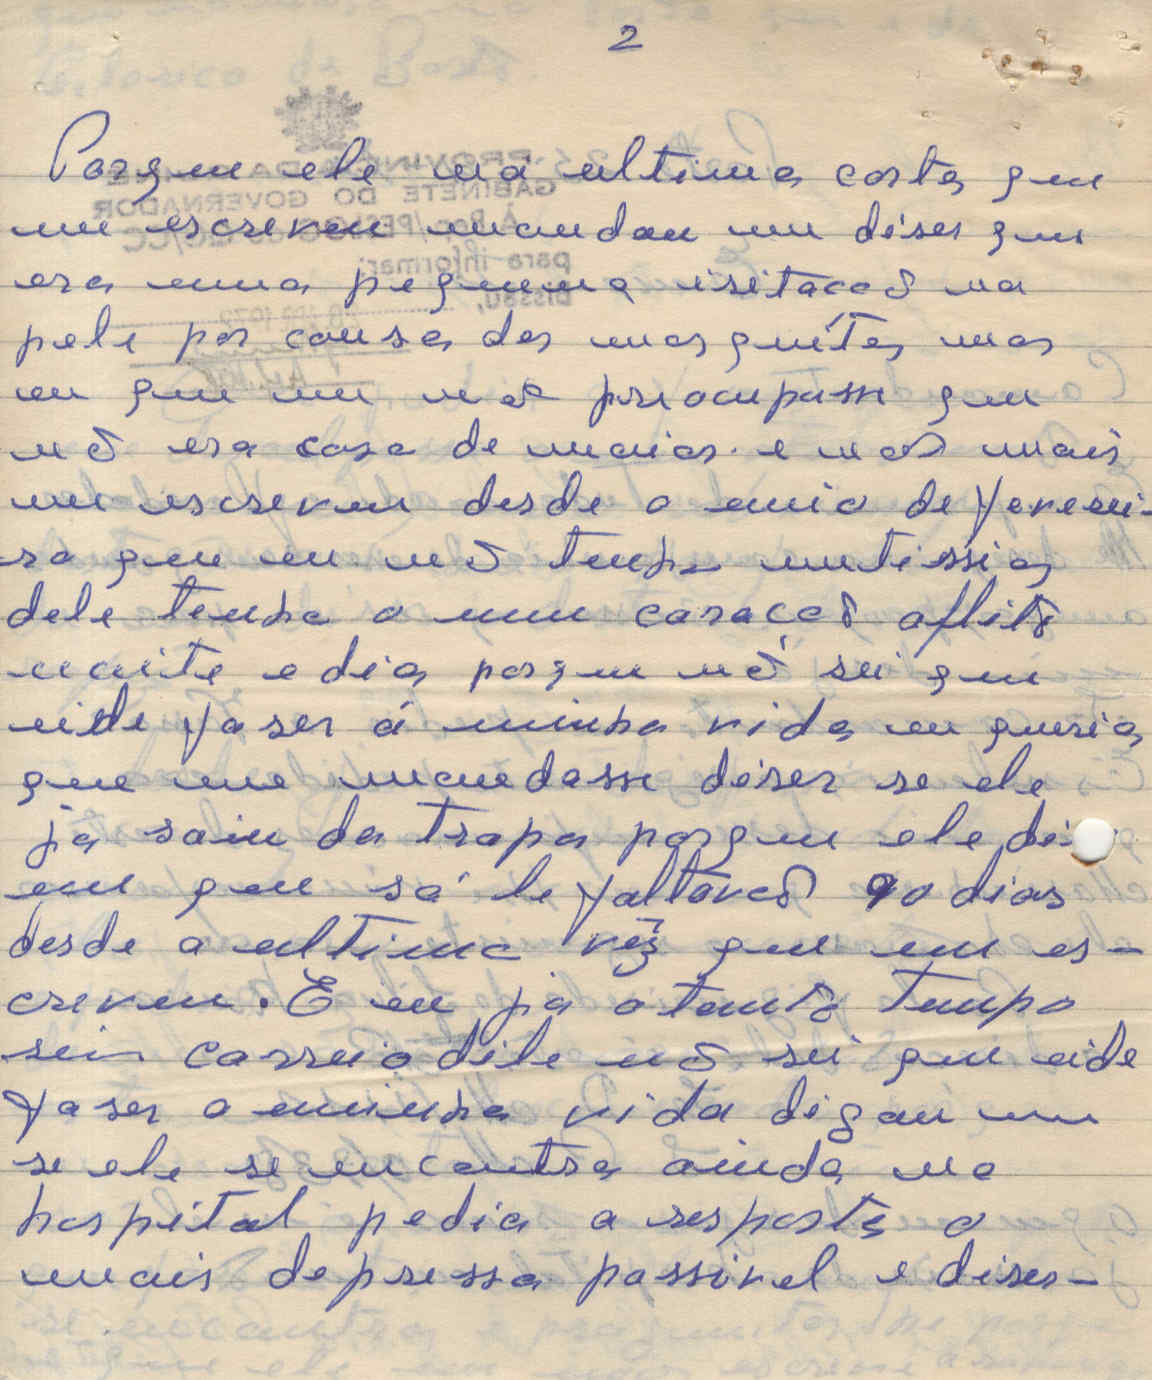 2
Porque ele ná ultima carta que
me escreveu mandou me diser que
era uma pequena iritacaõ na
pele por causa dos masquítos mas
eu que me naõ preocupasse que
nõ era casa de maior. e naõ mais
me escreveu desde o enicio de Feverei-
ro que eu nõ tenho nutissias
dele tenho o meu caracaõ aflitõ
noite e dia porque nõ sei que
eide faser á minha vida eu queria
que me mandasse diser se ele
já saiu da tropa porque ele di
eu que sá le faltavaõ 90 dias
desde a ultima vêz que me es-
creveu. E eu já a tantõ tempo
sein correio dele nõ sei que eide
faser a minha vida digan me
se ele se encontra ainda no
hospital pedia a resposta o
mais depressa passivel e diser-
PROVINCIA DA GUINE
GABINETE DO GOVERNADOR
para informar.
Bissau,